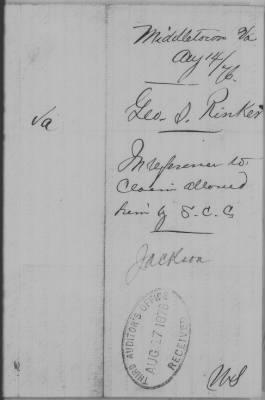 Middletown Va
Aug 14/76.
Va
Geo. S. Rinker
In reference to
Claim allowed
him by S. C. C
Jackson
THIRD AUDITOR'S OFFICE
AUG 17 1876
RECEIVED